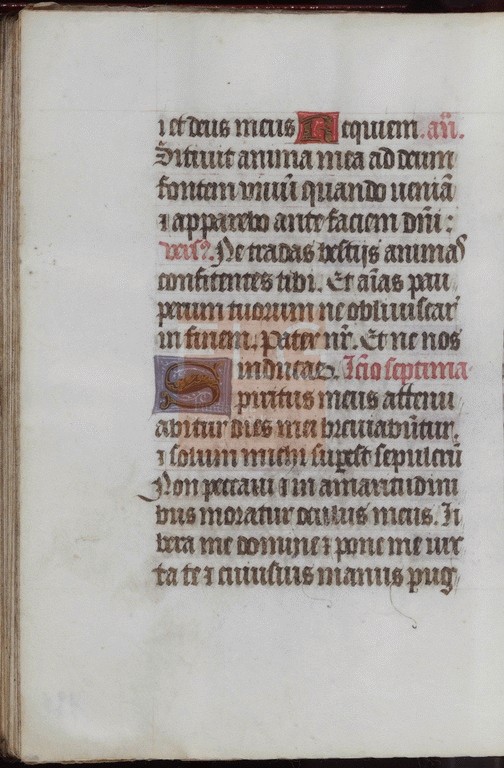 ⁊ et deus meus Requiem. añ.
Sitiuit anima mea ad deum
fontem viuū quando ueniā
⁊ apparebo ante faciem dñi :
vers?. Ne tradas bestijs animas
confitentes tibi. Et aīas pau
perum tuorum ne obliuiscar̕
in finem. Pater nr̄. Et ne nos
inducas. lc̄io septima
Spiritus meus attenu
abitur dies mei breuiabūtur.
⁊ solum michi suꝑest sepulcrū
Non peccaui ⁊ in amaritudini
bus moratur oculus meus. Li
bera me domine ⁊ pone me iux
ta te ⁊ cuiusuis manus pug